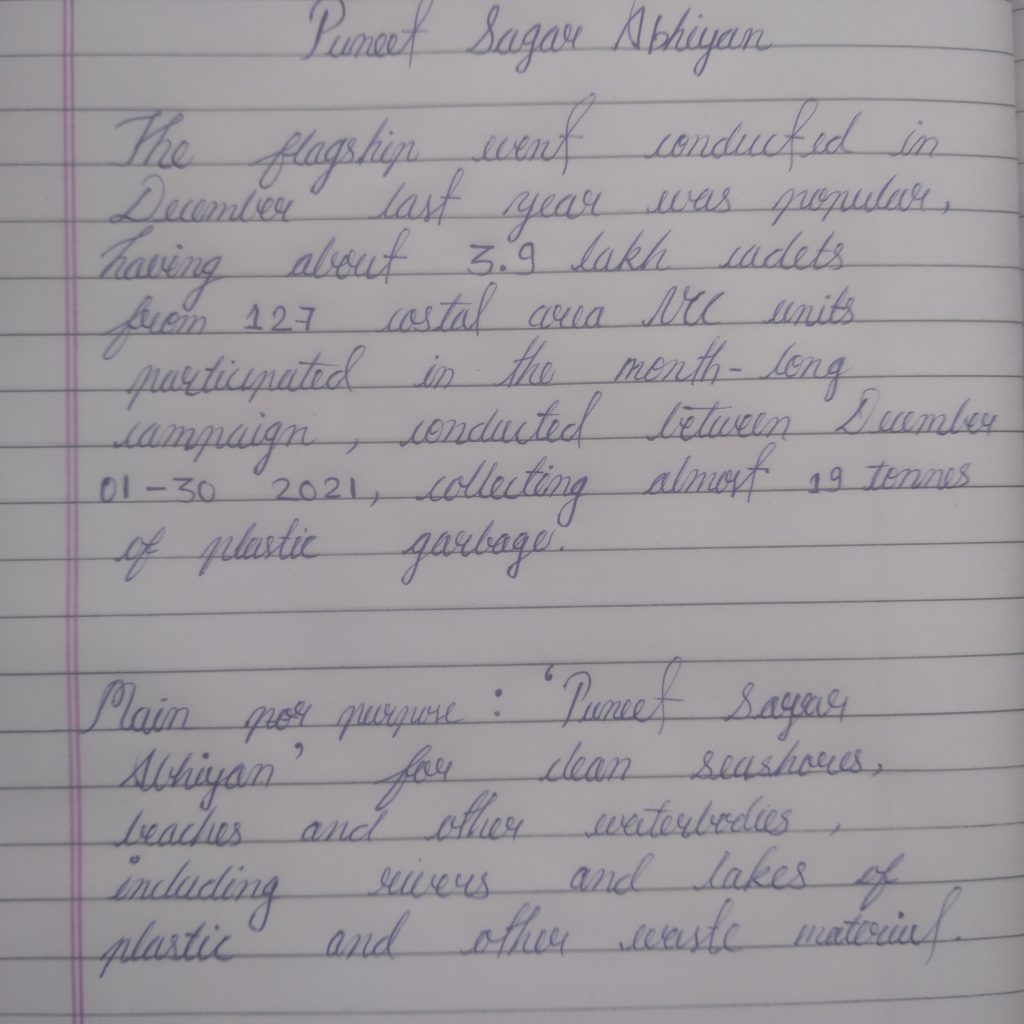 Puneet Sagar Abhiyan
The flagship event conducted in
December last year was popular,
having about 3.9 lakh cadets
from 127 costal area NCC units
participated in the month-long
campaign, conducted between December
01-30 2021, collecting almost 19 tonnes
of plastic garbage.
Main por purpose : 'Puneet Sagar
Abhiyan' for clean seashores,
beaches and other waterbodies,
including rivers and lakes of
plastic and other waste material.